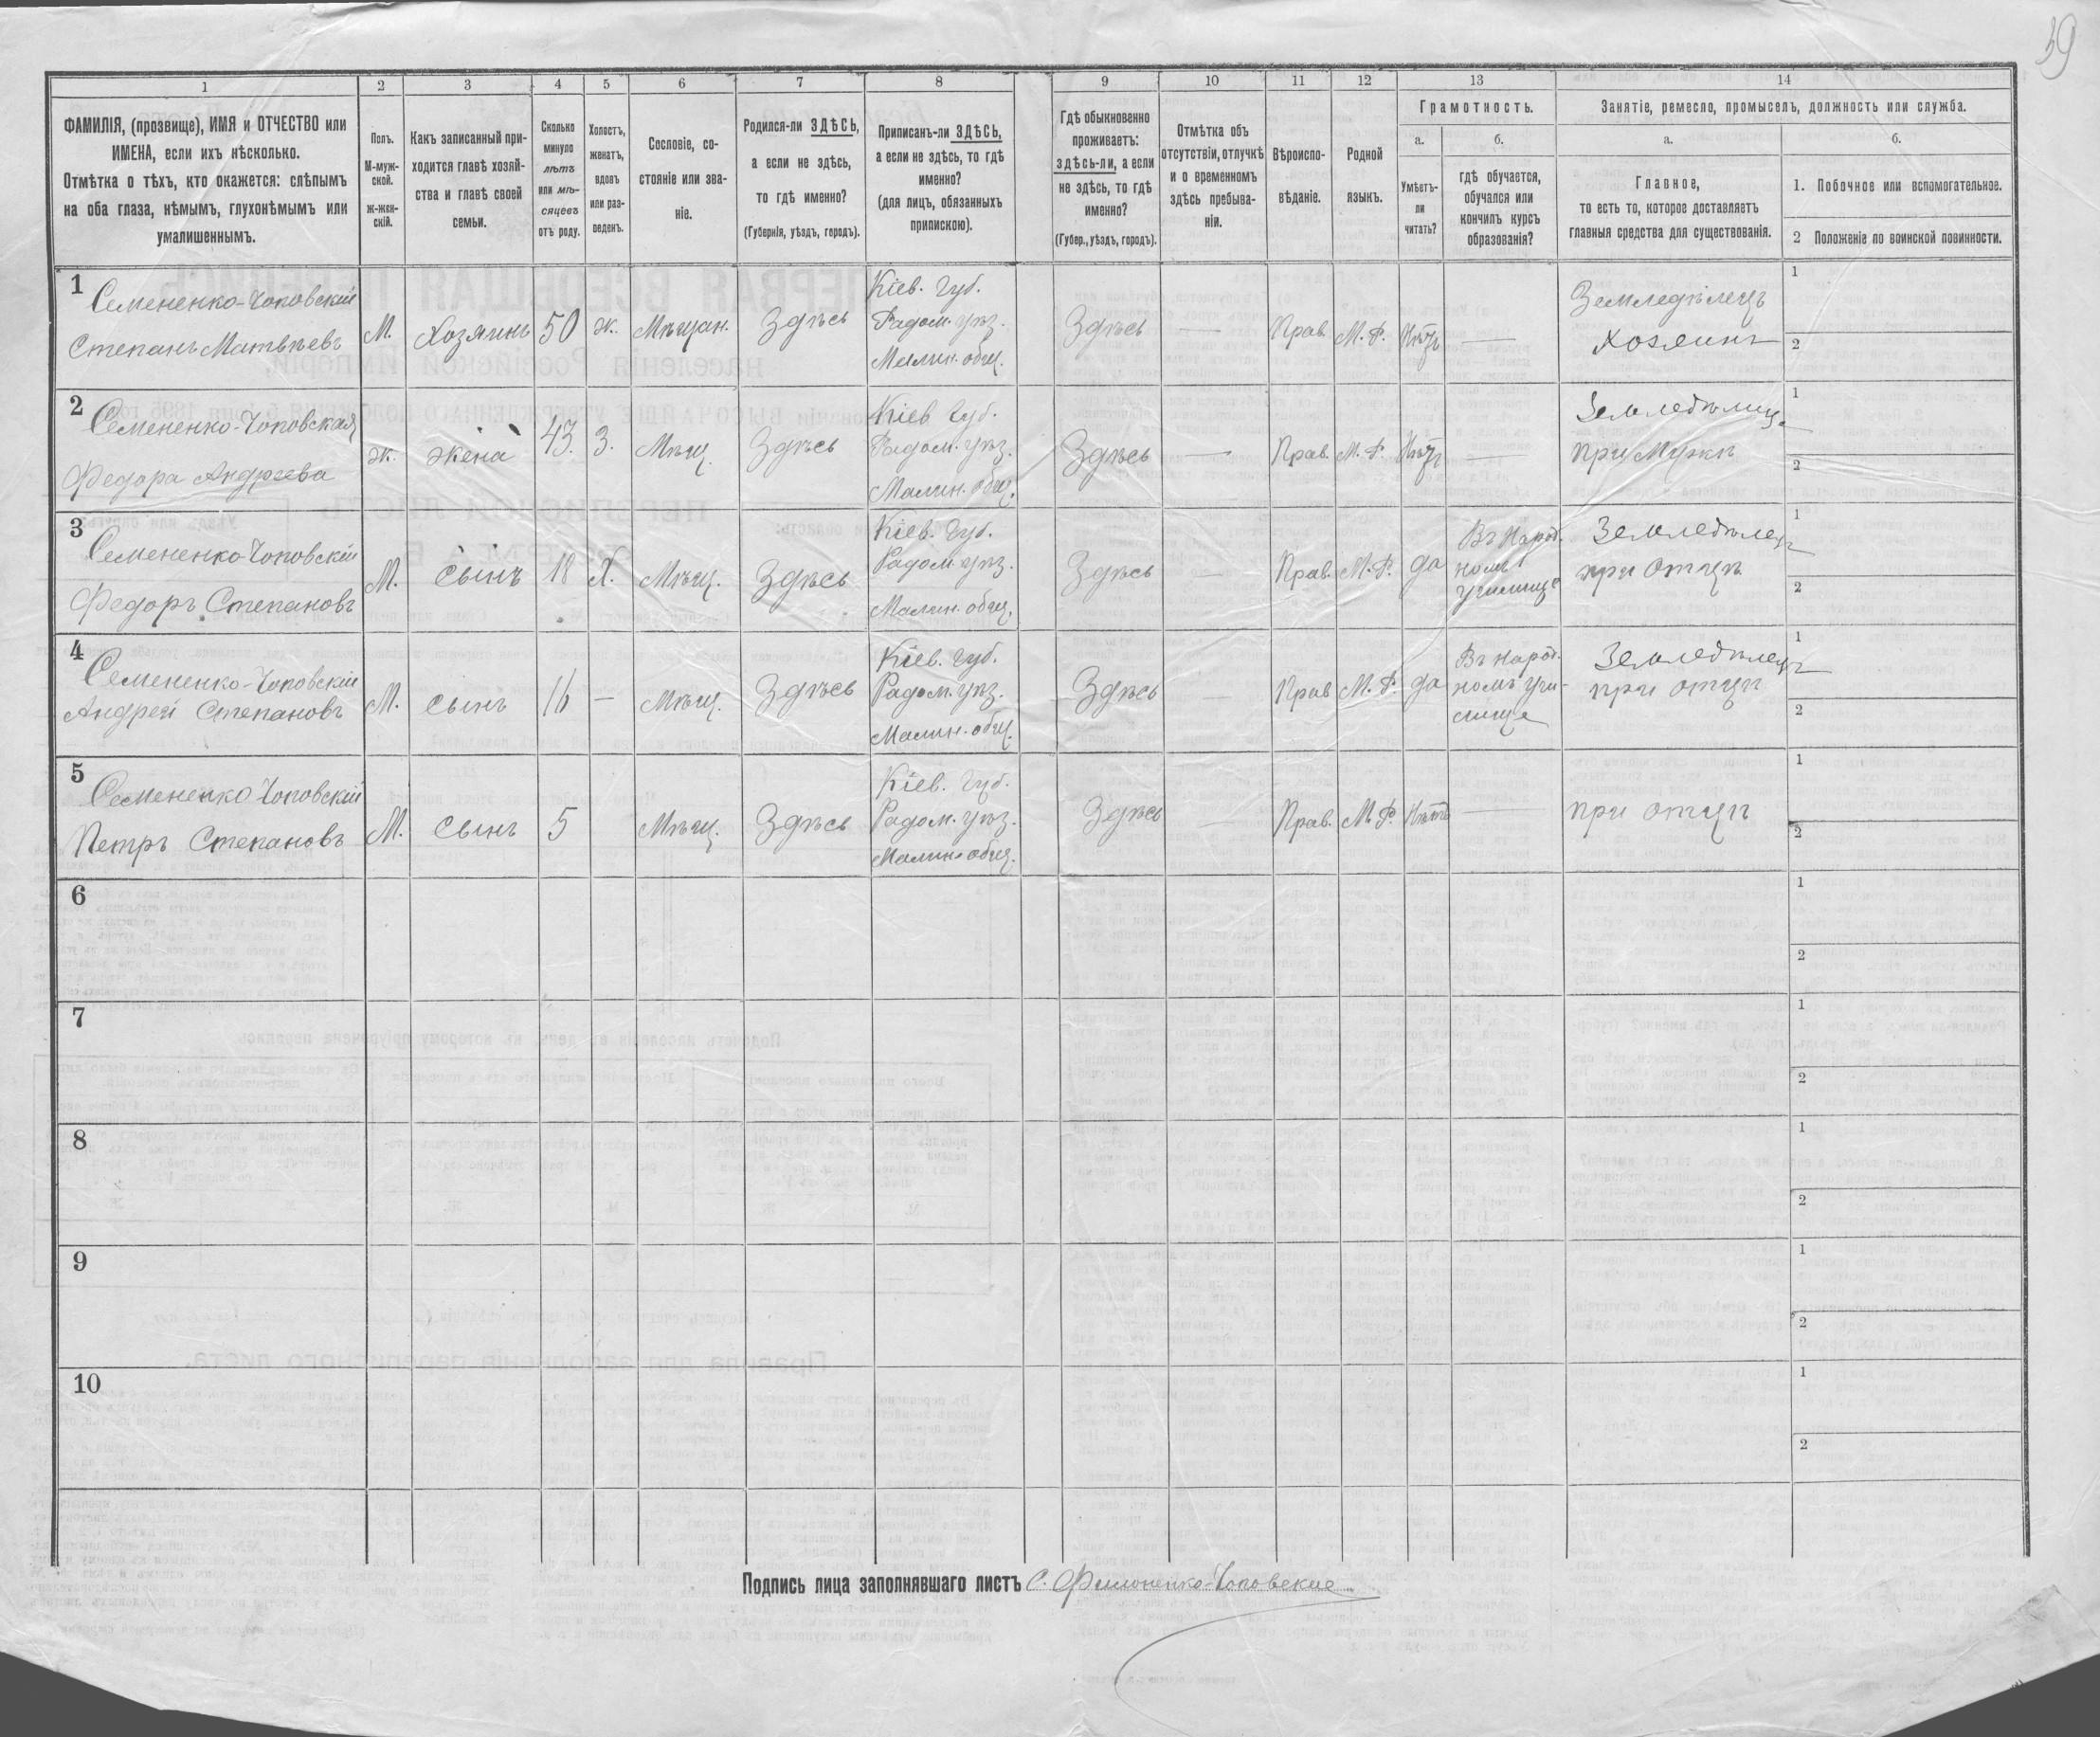 39
1 2 3 4 5 6 7 8 9 10 11 12 13 14
ФАМИЛІЯ, (прозвище), ИМЯ и ОТЧЕСТВО или
ИМЕНА, если ихъ нѣсколько.
Отмѣтка о тѣхъ, кто окажется: слѣпымъ
на оба глаза, нѣмымъ, глухонѣмымъ или
умалишеннымъ.
Полъ.
М-муж-
ской.
ж-жен-
скій.
Какъ записанный при-
ходится главѣ хозяй-
ства и главѣ своей
семьи.
Сколько
минуло
лѣтъ
или мѣ-
сяцевъ
отъ роду.
Холостъ,
женатъ,
вдовъ
или раз-
веденъ.
Сословіе, со-
стояніе или зва-
ніе.
Родился-ли ЗДѢСЬ,
а если не здѣсь,
то гдѣ именно?
(Губернія, уѣздъ, городъ).
Приписанъ-ли ЗДѢСЬ,
а если не здѣсь, то гдѣ
именно?
(для лицъ, обязанныхъ
припискою).
Гдѣ обыкновенно
проживаетъ:
здѣсь-ли, а если
не здѣсь, то гдѣ
именно?
(Губер., уѣздъ, городъ).
Отмѣтка объ
отсутствіи, отлучкѣ
и о временномъ
здѣсь пребыва-
ніи.
Вѣроиспо-
вѣданіе.
Родной
языкъ.
Грамотность.
а.
Умѣетъ-
ли
читать?
б.
гдѣ обучается,
обучался или
кончилъ курсъ
образованія?
Занятіе, ремесло, промыселъ, должность или служба.
а.
Главное,
то есть то, которое доставляетъ
главныя средства для существованія.
б.
1. Побочное или вспомогательное.
2 Положеніе по воинской повинности.
1
Семененко-Чоповскій
Степанъ Матвѣевъ
М.
Хозяинъ
50
ж.
Мѣщан.
Здѣсь
Кіев. Губ.
Радом. уѣз.
Малин. общ.
Здѣсь
—
Прав.
М. Р.
Нѣтъ
—
Земледѣлецъ
Хозяинъ
1
2
2
Семененко-Чоповская
Федора Андреева
ж.
жена
43.
З.
Мѣщ.
Здѣсь
Кіев Губ.
Радом. уѣз.
Малин. общ.
Здѣсь
—
Прав.
М. Р.
Нѣтъ
—
Земледѣлиц.
при Мужѣ
1
2
3
Семененко-Чоповскій
Федоръ Степановъ
М.
сынъ
18
Х.
Мѣщ.
Здѣсь
Кіев. Губ.
Радом. уѣз.
Малин. общ.
Здѣсь
—
Прав.
М. Р.
да
Въ Народ.
номъ
училище
Земледѣлецъ
при Отцѣ
1
2
4
Семененко-Чоповскій
Андрей Степановъ
М.
сынъ
16
—
Мѣщ.
Здѣсь
Кіев. Губ.
Радом. уѣз.
Малин. общ.
Здѣсь
—
Прав
М. Р.
да
Въ Народ.
номъ учи-
лище
Земледѣлецъ
при отцѣ
1
2
5
Семененко Чоповскій
Петръ Степановъ
М.
сынъ
5
Мѣщ.
Здѣсь
Кіев. Губ.
Радом. уѣз.
Малин. общ.
Здѣсь
—
Прав.
М. Р.
Нѣтъ
—
при отцѣ
1
2
6
1
2
7
1
2
8
1
2
9
1
2
10
1
2
Подпись лица заполнявшаго листъ С. Филоненко-Чоповскіе